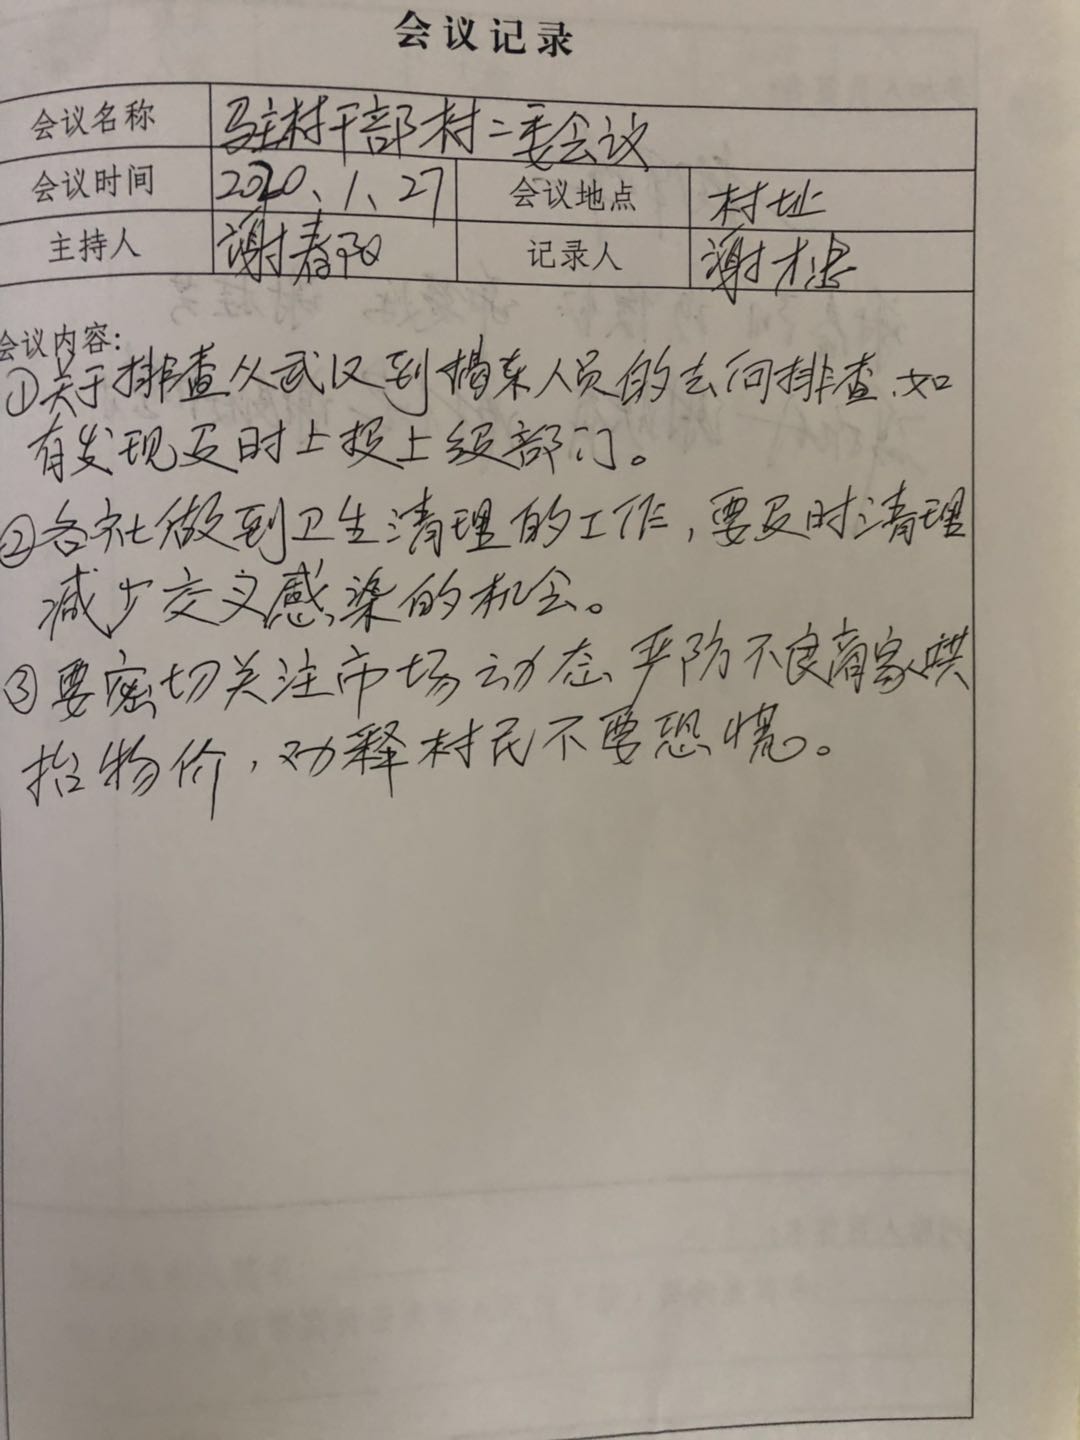 会议记录
会议名称 驻村干部村二委会议
会议时间 2020、1、27 会议地点 村址
主持人 谢春阳 记录人 谢木忠
会议内容：
①关于排查从武汉到揭东人员的去向排查，如
有发现及时上报上级部门。
②各社做到卫生清理的工作，要及时清理
减少交叉感染的机会。
③要密切关注市场动态 严防不良商家哄
抬物价，劝释村民不要恐慌。